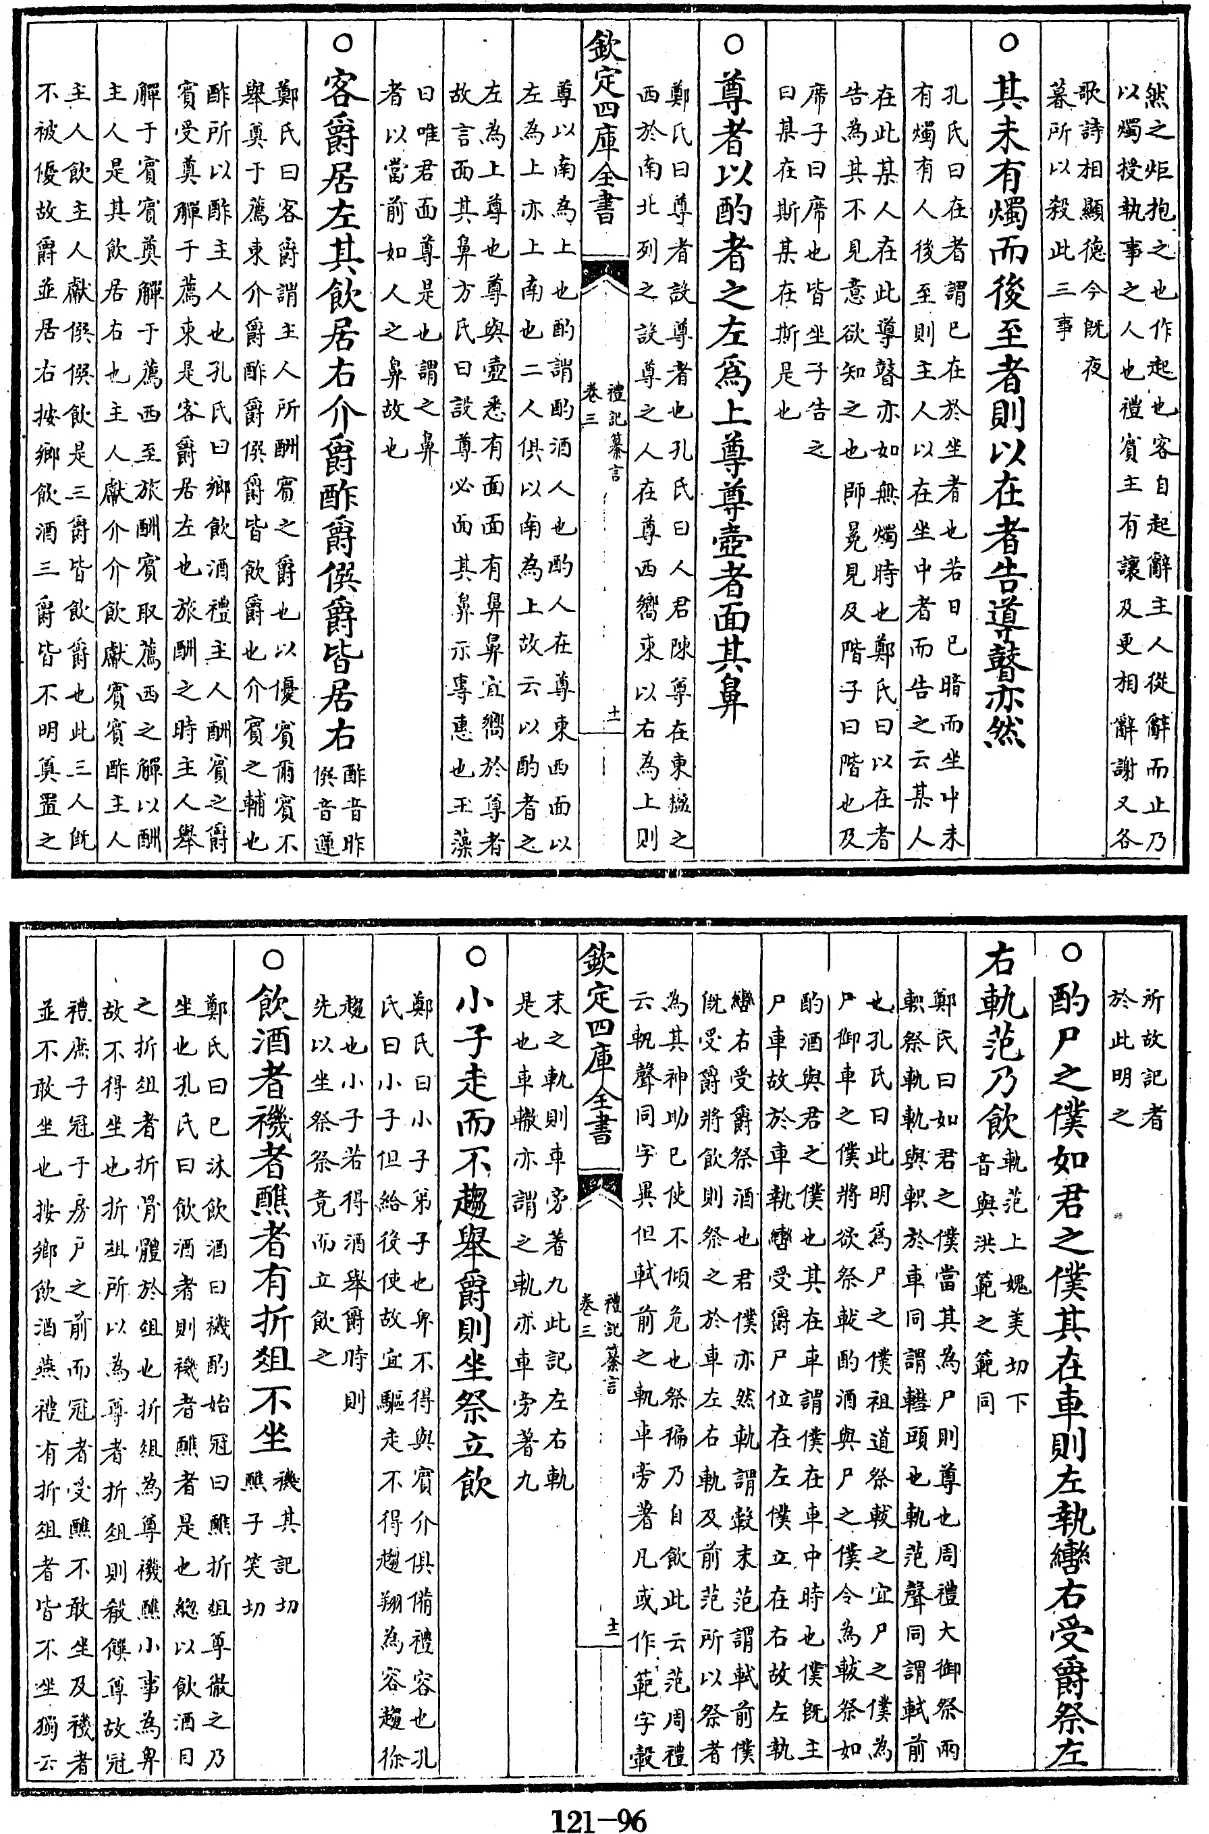 然之炬抱之也作起也客自起辭主人從辭而止乃
以燭授執事之人也禮賓主有讓及更相辭謝又各
歌詩相顯德今既夜
暮所以殺此三事
○其未有燭而後至者則以在者告導瞽亦然
孔氏曰在者謂已在於坐者也若日已暗而坐中未
有燭有人後至則主人以在坐中者而告之云某人
在此某人在此導瞽亦如無燭時也鄭氏曰以在者
告為其不見意欲知之也師冕見及階子曰階也及
席子曰席也皆坐子告之
曰某在斯某在斯是也
○尊者以酌者之左爲上尊尊壺者面其鼻
鄭氏曰尊者設尊者也孔氏曰人君陳尊在東楹之
西於南北列之設尊之人在尊西嚮東以右為上則
欽定四庫全書
禮記纂言
卷三
十一
尊以南為上也酌謂酌酒人也酌人在尊東西面以
左為上亦上南也二人俱以南為上故云以酌者之
左為上尊也尊與壺悉有面面有鼻鼻宜嚮於尊者
故言面其鼻方氏曰設尊必面其鼻示專惠也玉藻
曰唯君面尊是也謂之鼻
者以當前如人之鼻故也
○客爵居左其飲居右介爵酢爵僎爵皆居右
酢音昨
僎音遵
鄭氏曰客爵謂主人所酬賓之爵也以優賓爾賓不
舉奠于薦東介爵酢爵僎爵皆飲爵也介賓之輔也
酢所以酢主人也孔氏曰鄉飲酒禮主人酬賓之爵
賓受奠觶于薦東是客爵居左也旅酬之時主人舉
觶于賓賓奠觶于薦西至旅酬賓取薦西之觶以酬
主人是其飲居右也主人獻介介飲獻賓賓酢主人
主人飲主人獻僎僎飲是三爵皆飲爵也此三人既
不被優故爵並居右按鄉飲酒三爵皆不明奠置之
所故記者
於此明之
○酌尸之僕如君之僕其在車則左執轡右受爵祭左
右軌范乃飲
軌范上媿美切下
音與洪範之範同
鄭氏曰如君之僕當其為尸則尊也周禮大御祭兩
軹祭軌軌與軹於車同謂轊頭也軌范聲同謂軾前
也孔氏曰此明爲尸之僕祖道祭軷之宜尸之僕為
尸御車之僕將欲祭軷酌酒與尸之僕令為軷祭如
酌酒與君之僕也其在車謂僕在車中時也僕既主
尸車故於車執轡受爵尸位在左僕立在右故左執
轡右受爵祭酒也君僕亦然軌謂轂末范謂軾前僕
既受爵將飲則祭之於車左右軌及前范所以祭者
為其神助已使不傾危也祭徧乃自飲此云范周禮
云軓聲同字異但軾前之軓車旁著凡或作範字轂
欽定四庫全書
禮記纂言
卷三
十二
末之軌則車旁著九此記左右軌
是也車轍亦謂之軌亦車旁著九
○小子走而不趨舉爵則坐祭立飲
鄭氏曰小子弟子也卑不得與賓介俱備禮容也孔
氏曰小子但給役使故宜驅走不得趨翔為容趨徐
趨也小子若得酒舉爵時則
先以坐祭祭竟而立飲之
○飲酒者禨者醮者有折俎不坐
禨其記切
醮子笑切
鄭氏曰已沐飲酒曰禨酌始冠曰醮折俎尊徹之乃
坐也孔氏曰飲酒者則禨者醮者是也總以飲酒目
之折俎者折骨體於俎也折俎為尊禨醮小事為卑
故不得坐也折俎所以為尊者折俎則殽饌尊故冠
禮庶子冠于房戸之前而冠者受醮不敢坐及禨者
並不敢坐也按鄉飲酒燕禮有折俎者皆不坐獨云
121-96